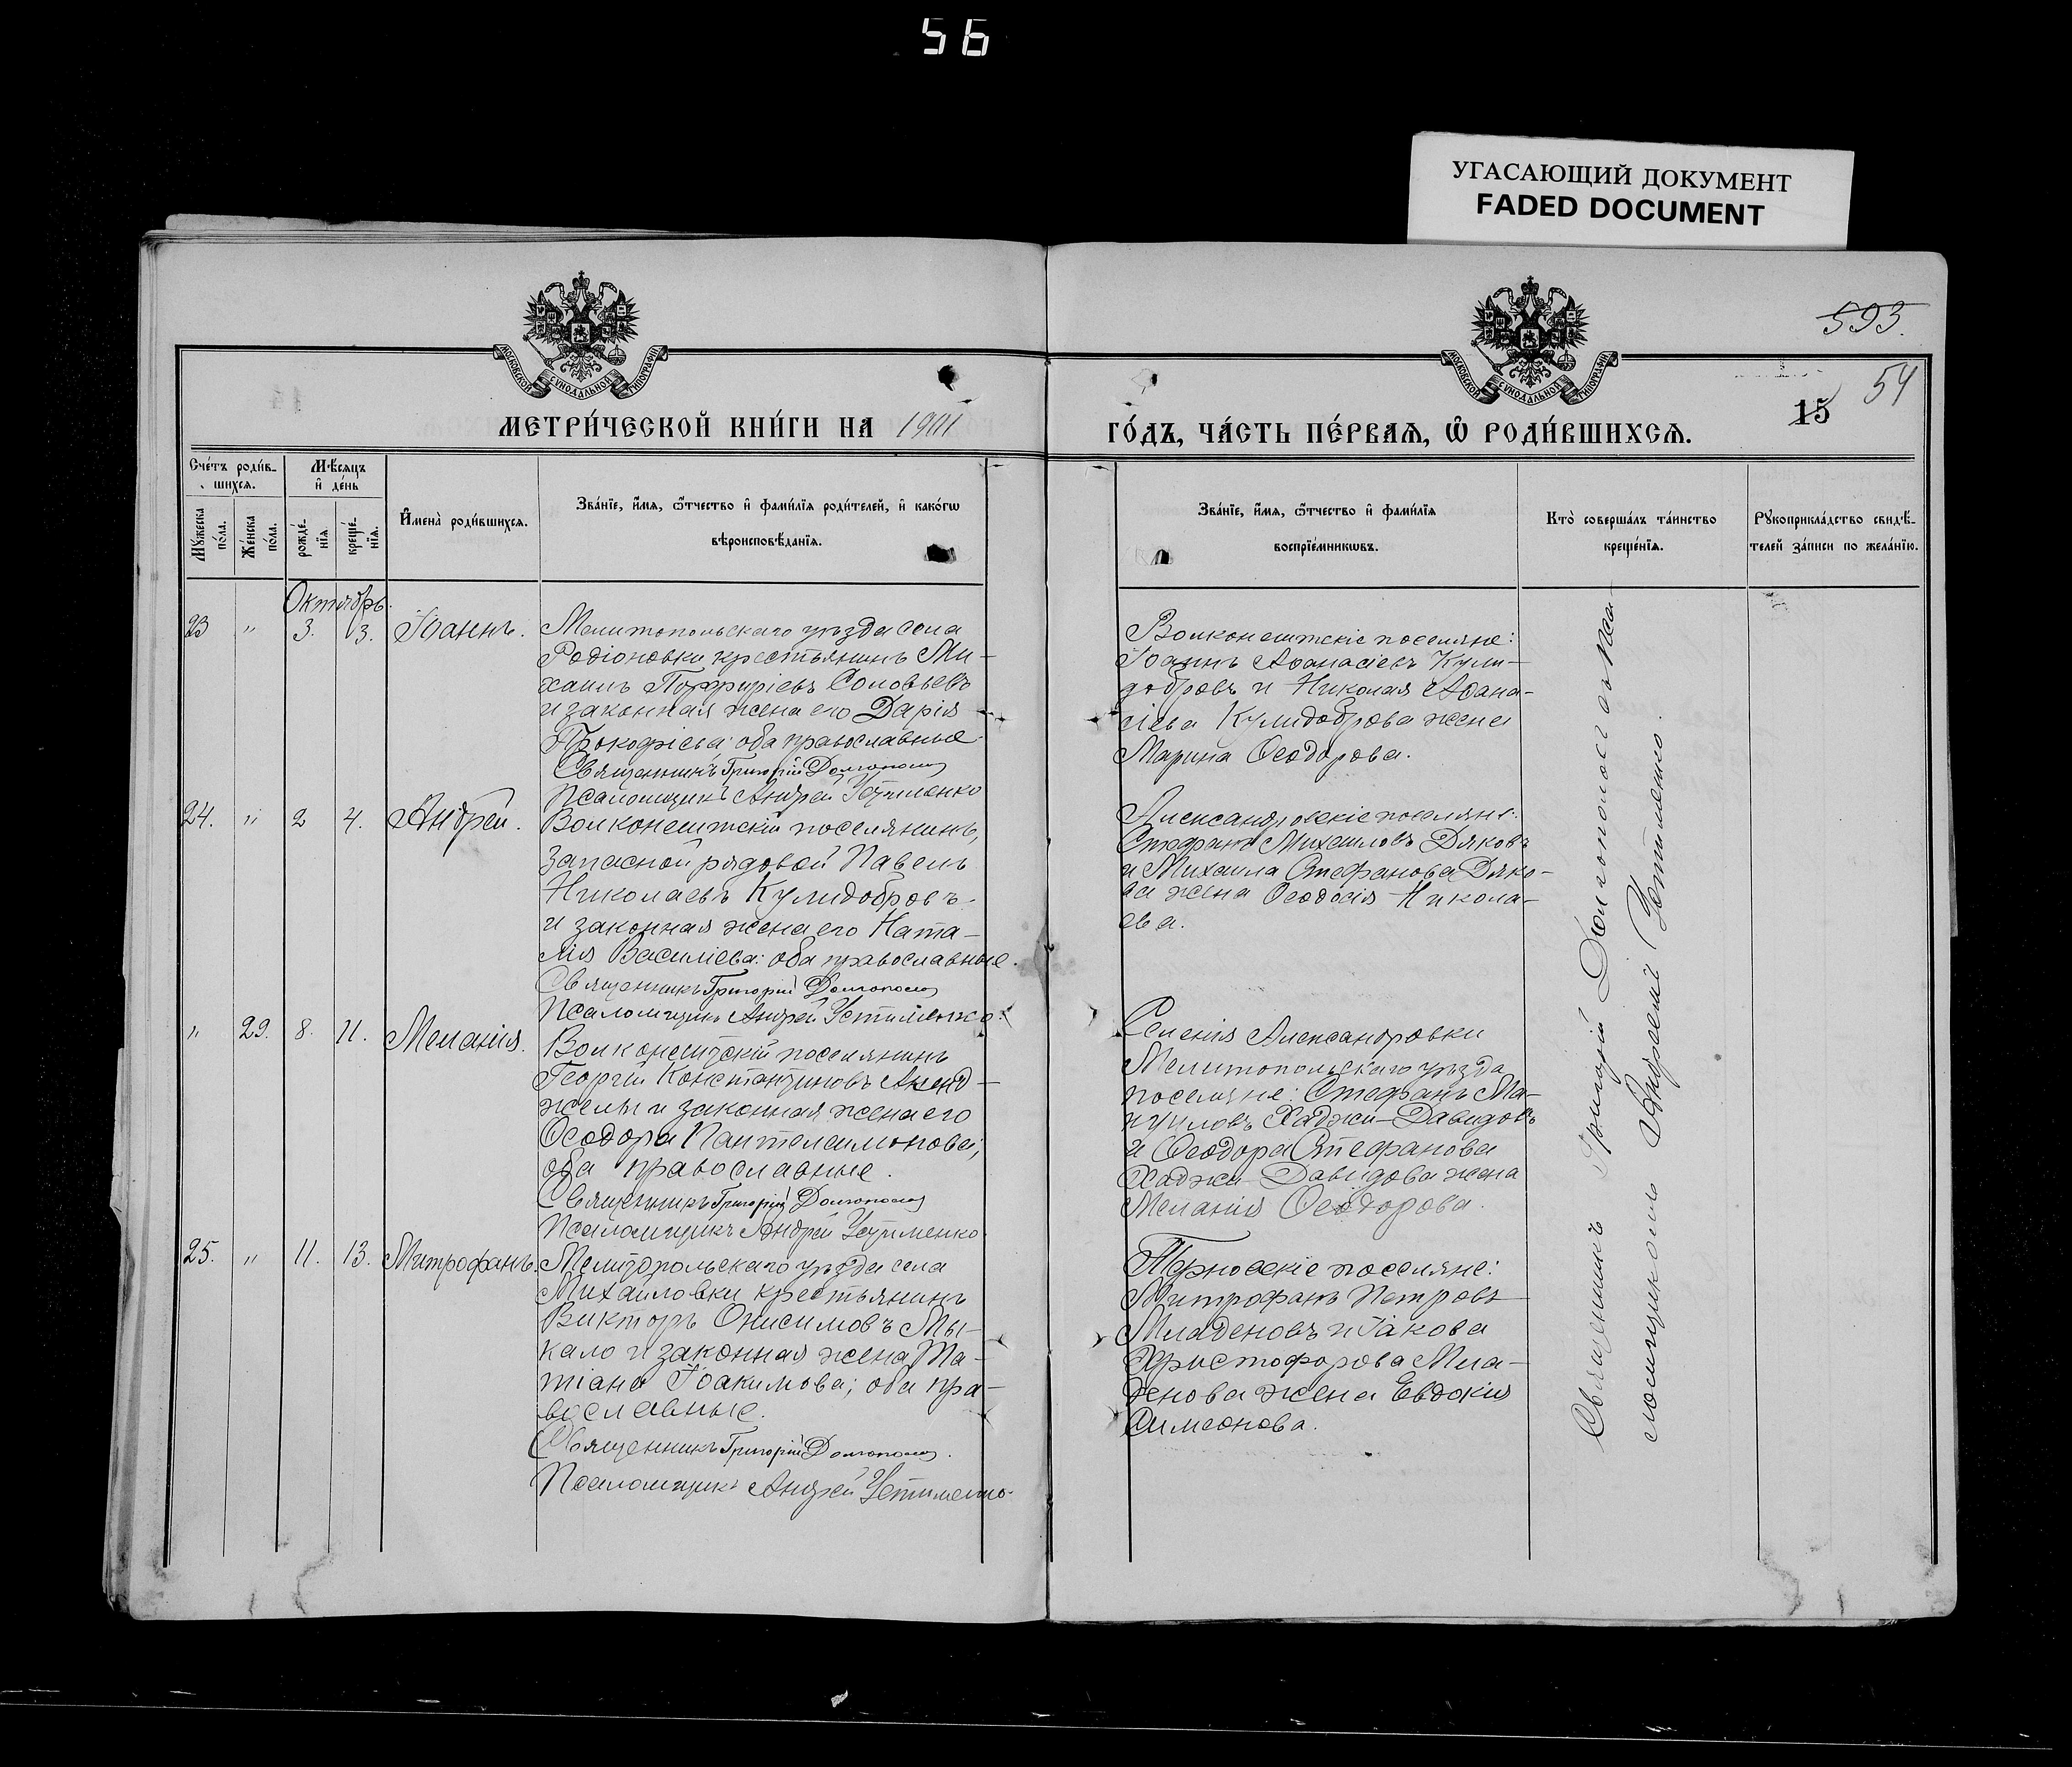 56
УГАСАЮЩИЙ ДОКУМЕНТ
FADED DOCUMENT
593.
54
15
МОСКОВСКОЙ СѴНОДАЛЬНОЙ ТИПОГРАФІИ
МОСКОВСКОЙ СѴНОДАЛЬНОЙ ТИПОГРАФІИ
МЕТРИ́ЧЕСКОЙ КНИ́ГИ НА 1901
ГО́ДЪ, ЧА́СТЬ ПЕ́РВАѦ, Ѽ РОДИ́ВШИХСѦ.
Сче́тъ роди́в-
шихсѧ.
Мѣ́сѧцъ
и҆ де́нь
Мꙋ́жеска
по́ла.
Же́нска
по́ла.
рожде́-
нїѧ
креще́-
нїѧ.
И҆мена̀ роди́вшихсѧ.
Зва́нїе, и҆́мѧ, ѻ҆́тчество и҆ фами́лїѧ роди́телей, и҆ како́гѡ
вѣроисповѣ́данїѧ.
Зва́нїе, и҆́мѧ, ѻ҆́тчество и҆ фами́лїѧ
воспрїе́мникѡвъ.
Кто̀ соверша́лъ та́инство
креще́нїѧ.
Рꙋкоприкла́дство свидѣ́-
телей за́писи по жела́нїю.
Октябрь.
23 " 3. 13. Іоаннъ.
Мелитопольскаго уѣзда села
Родіоновки крестьянинъ Ми-
хаилъ Порфиріевъ Соловьевъ
и законная жена его Дарія
Прокофіева: оба православные
Священникъ Григорій Долгополов
Псаломщикъ Андрей Устименко
Волконештскіе поселяне:
Іоаннъ Аѳанасіевъ Кули-
добровъ и Николая Аѳана-
сіева Кулидоброва жена
Марина Ѳеодорова.
24. " 2 4. Андрей.
Волконештскій поселянинъ,
запасной рядовой Павелъ
Николаевъ Кулидобровъ
и законная жена его Ната-
лія Василіева: оба православные.
Священникъ Григорій Долгополов
Псаломщикъ Андрей Устименко.
Александровскіе поселяне:
Стефанъ Михаиловъ Дяковъ
и Михаила Стефанова Дяко-
ва жена Ѳеодосія Никола-
ева.
" 29. 8. 11. Меланія.
Волконештскій поселянинъ
Георгій Константиновъ Акенд-
желы и законная жена его
Ѳеодора Пантелеимонова;
оба православные.
Священникъ Григорій Долгополов
Псаломщикъ Андрей Устименко.
Селенія Александровки
Мелитопольскаго уѣзда
поселяне: Стефанъ Ма-
нуиловъ Хаджи-Давидовъ
и Ѳеодора Стефанова
Хаджи-Давидова жена
Меланія Ѳеодорова.
25. " 11. 13. Митрофанъ.
Мелитопольскаго уѣзда села
Михаиловки крестьянинъ
Викторъ Онисимовъ Мы-
кало и законная жена Та-
тіана Іоакимова; оба пра-
вославные.
Священникъ Григорій Долгополов.
Псаломщикъ Андрей Устименко.
поселяне:
Митрофанъ Петровъ
Младеновъ и Іакова
Христофорова Мла-
денова жена Евдокія
Симеонова.
Священникъ Григорій Долгополов съ Пса-
ломщикомъ Андреемъ Устименко.